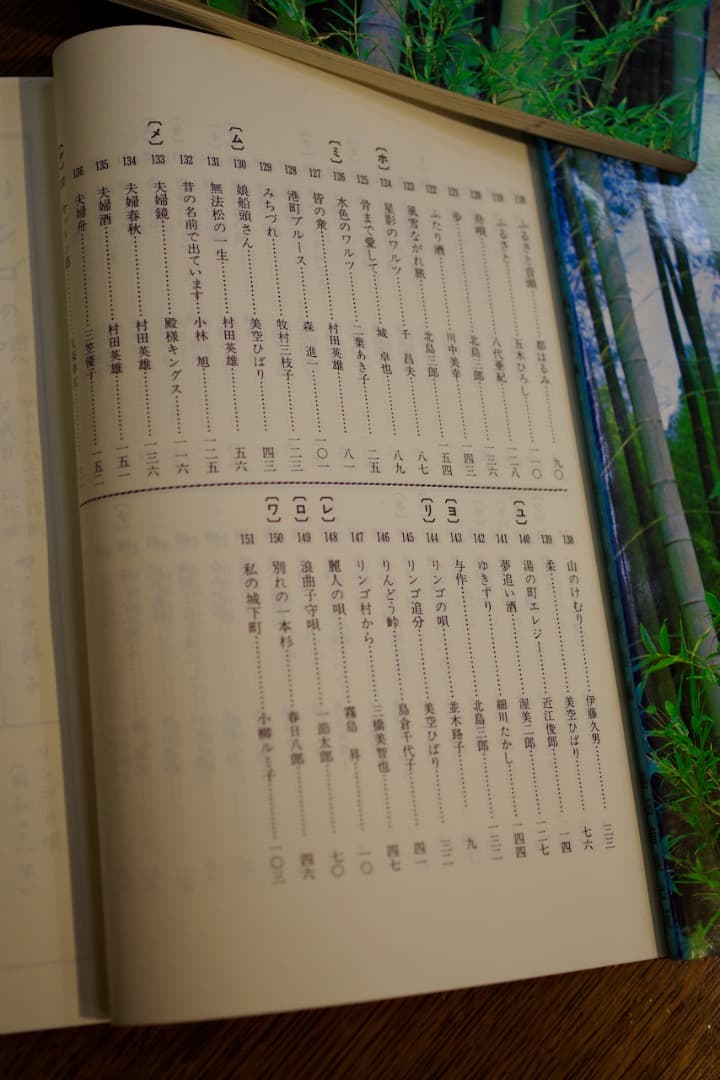 118 ふるさと音頭 都はるみ 九〇
119 ふるさと 五木ひろし 二一〇
120 舟唄 八代亜紀 二二八
121 歩 北島三郎 一三六
122 ふたり酒 川中美幸 一四三
123 風雪ながれ旅 北島三郎 一五四
〔ホ〕 124 星影のワルツ 千昌夫 八七
125 骨まで愛して 城卓也 八九
〔ミ〕 126 水色のワルツ 二葉あき子 二五
127 皆の衆 村田英雄 八一
128 港町ブルース 森進一 一〇一
129 みちづれ 牧村三枝子 一二三
〔ム〕 130 娘船頭さん 美空ひばり 四三
131 無法松の一生 村田英雄 五六
132 昔の名前で出ています 小林旭 一二五
〔メ〕 133 夫婦鏡 殿様キングス 一一六
134 夫婦春秋 村田英雄 一三六
135 夫婦酒 村田英雄 一五一
136 夫婦舟 三笠優子 一五二
138 山のけむり 伊藤久男 三三
139 柔 美空ひばり 七六
〔ユ〕 140 湯の町エレジー 近江俊郎 一四
141 夢追い酒 渥美二郎 一二七
142 ゆきずり 細川たかし 一四四
〔ヨ〕 143 与作 北島三郎 一三二
〔リ〕 144 リンゴの唄 並木路子 九
145 リンゴ追分 美空ひばり 三二
146 りんどう峠 島倉千代子 四一
147 リンゴ村から 三橋美智也 四七
〔レ〕 148 麗人の唄 霧島昇 一〇
〔ロ〕 149 浪曲子守唄 一節太郎 七〇
〔ワ〕 150 別れの一本杉 春日八郎 四六
151 私の城下町 小柳ルミ子 一〇三